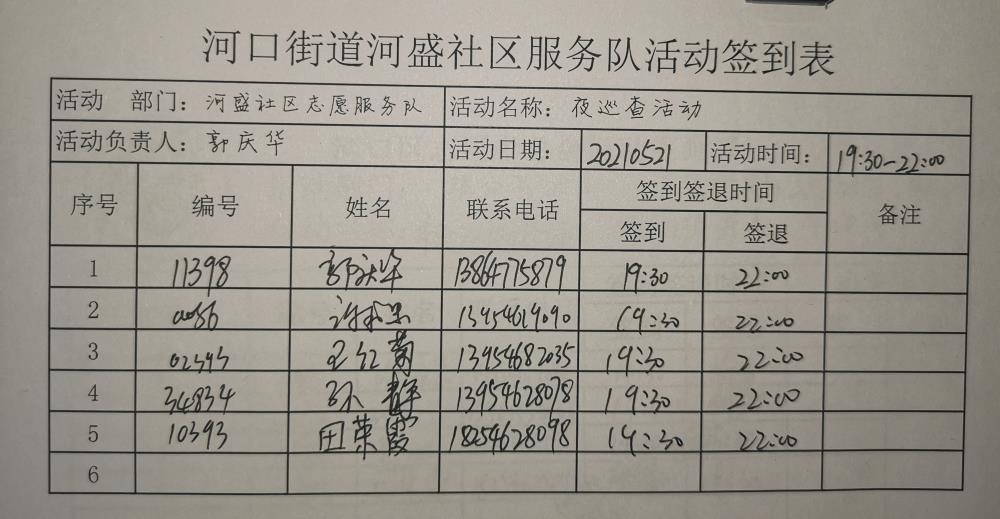 河口街道河盛社区服务队活动签到表
活动 部门：河盛社区志愿服务队 活动名称：夜巡查活动
活动负责人：郭庆华 活动日期：20210521 活动时间：19:30-22:00
序号 编号 姓名 联系电话 签到签退时间 备注
签到 签退
1 11398 郭庆华 13864775879 19:30 22:00
2 13954619090 19:30 22:00
3 王红菊 13954682035 19:30 22:00
4 34834 孙静 13954628078 19:30 22:00
5 10393 田荣霞 18254628098 19:30 22:00
6